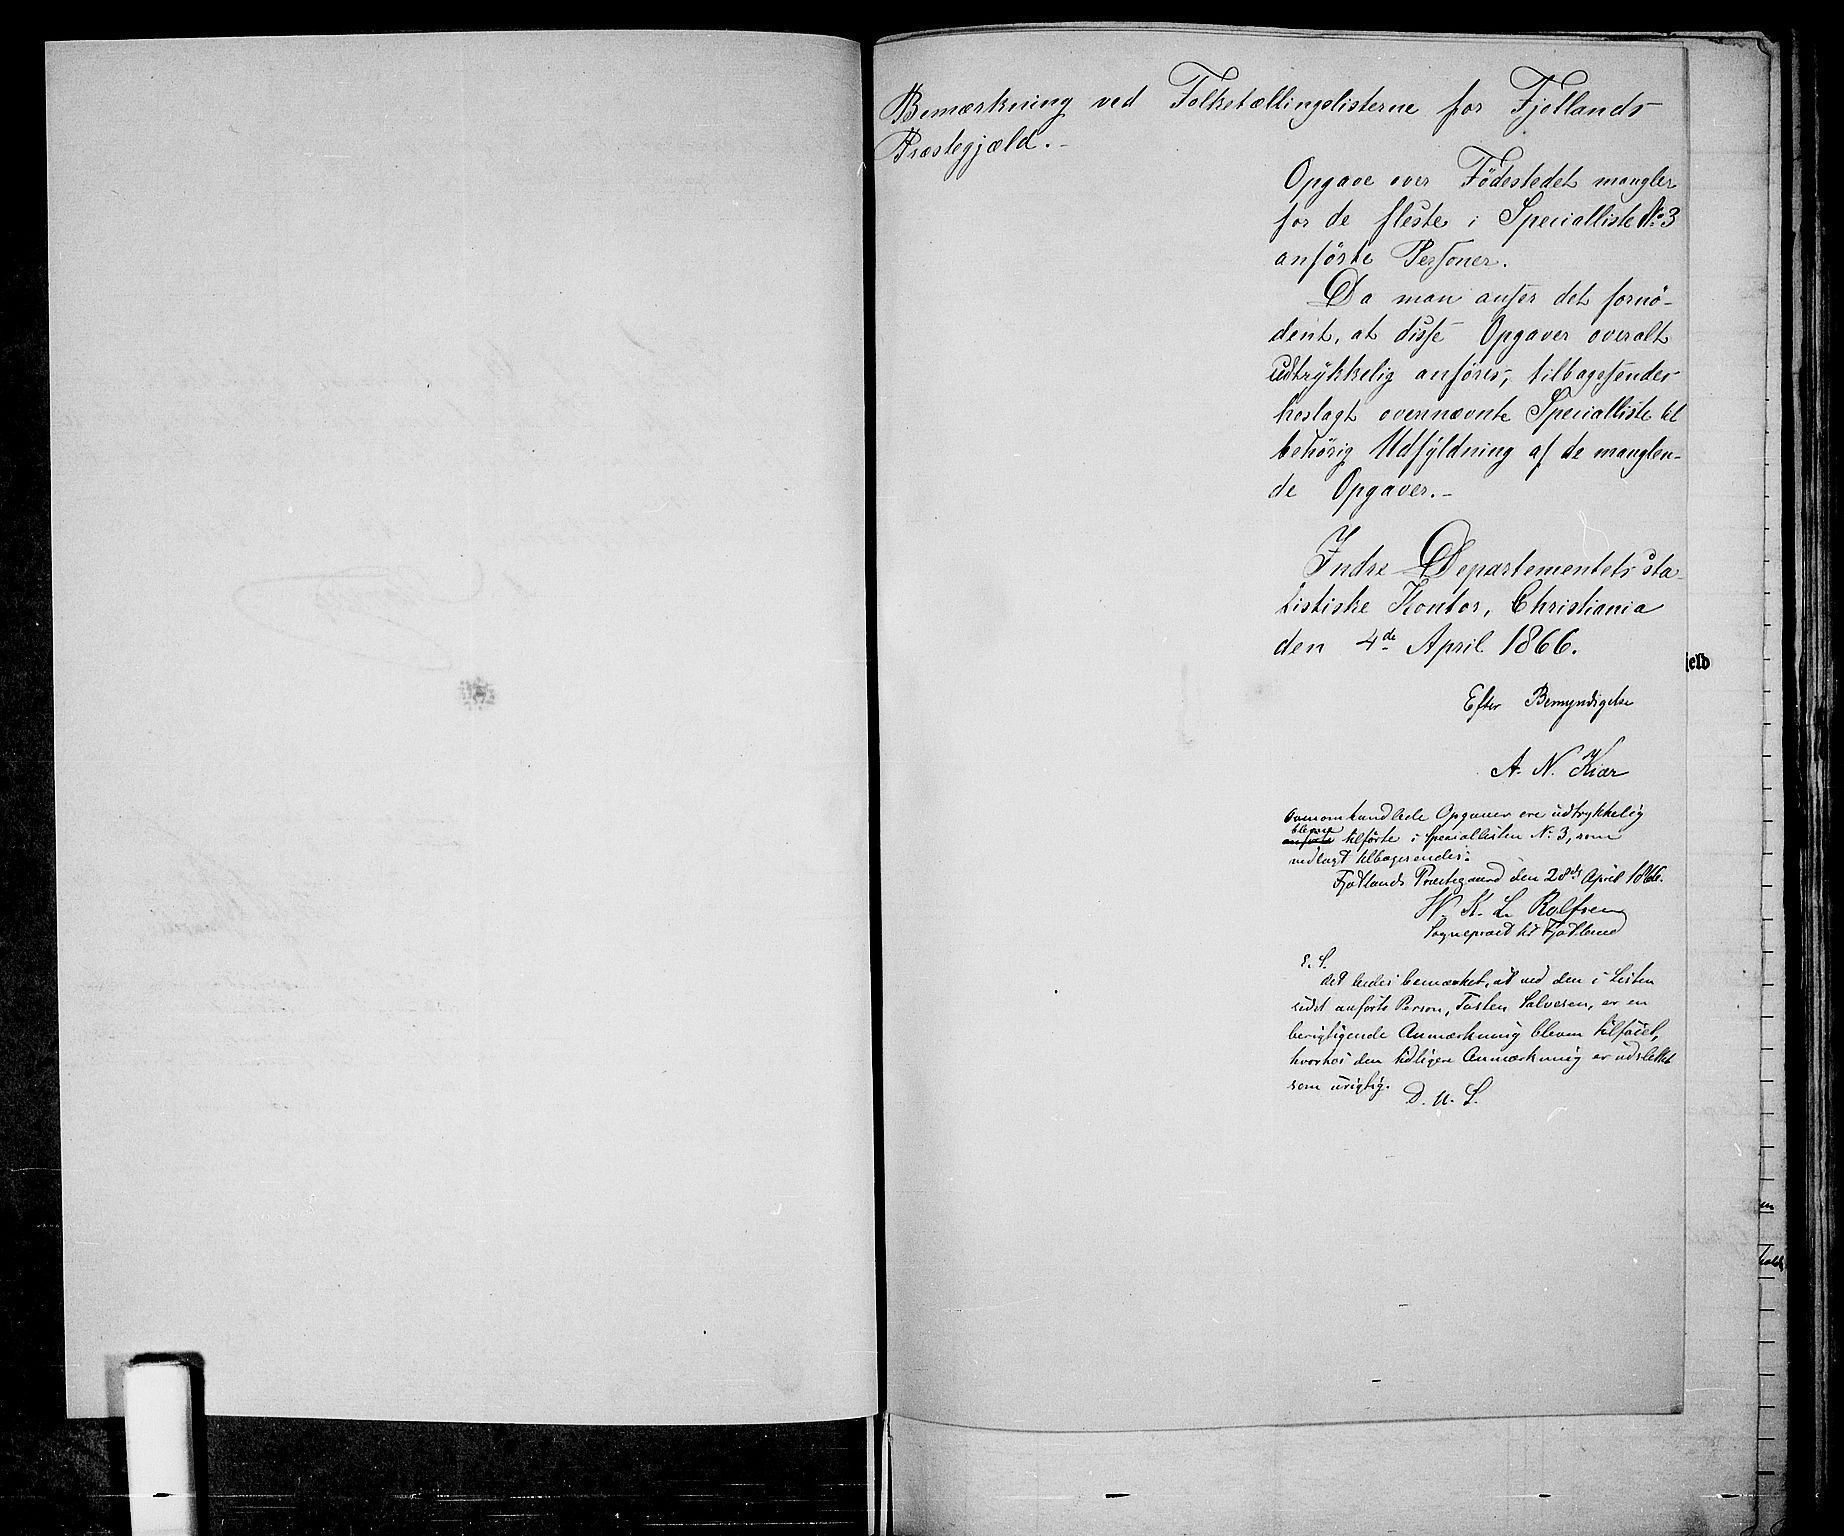 Bemærkning ved Folketællingslisterne for Fjotlands
Præstegjæld.-
Opgave over Fødestedet mangler
for de fleste i Specialliste No 3
anførte Personer.
Da man anser det fornø-
dent, at disse Opgaver overalt
udtrykkelig anføres, tilbagesendes
hoslagt overnævnte Specialliste til
behørig Udfyldning af de manglen-
de Opgaver.-
Indre Departementets sta-
tistiske Kontor, Christiania
den 4de April 1866.
jeld
Efter Bemyndigelse
A. N. Kiær
Ovenomhandlede Opgaver ere udtrykkelig
blevne
anførte tilførte i Speciallisten No 3, som
vedlagt tilbagesendes.
Fjotlands Præstegaard den 28de April 1866.
W. K. L. Rolfsen
Sognepræst til Fjotland
Det bedes bemærket, at ved den i Listen
sidst anførte Person, Tosten Salvesen, er en
berigtigende Anmærkning bleven tilføiet,
hvorhos den tidligere Anmærkning er udslettet
som urigtig.
D. u. S.